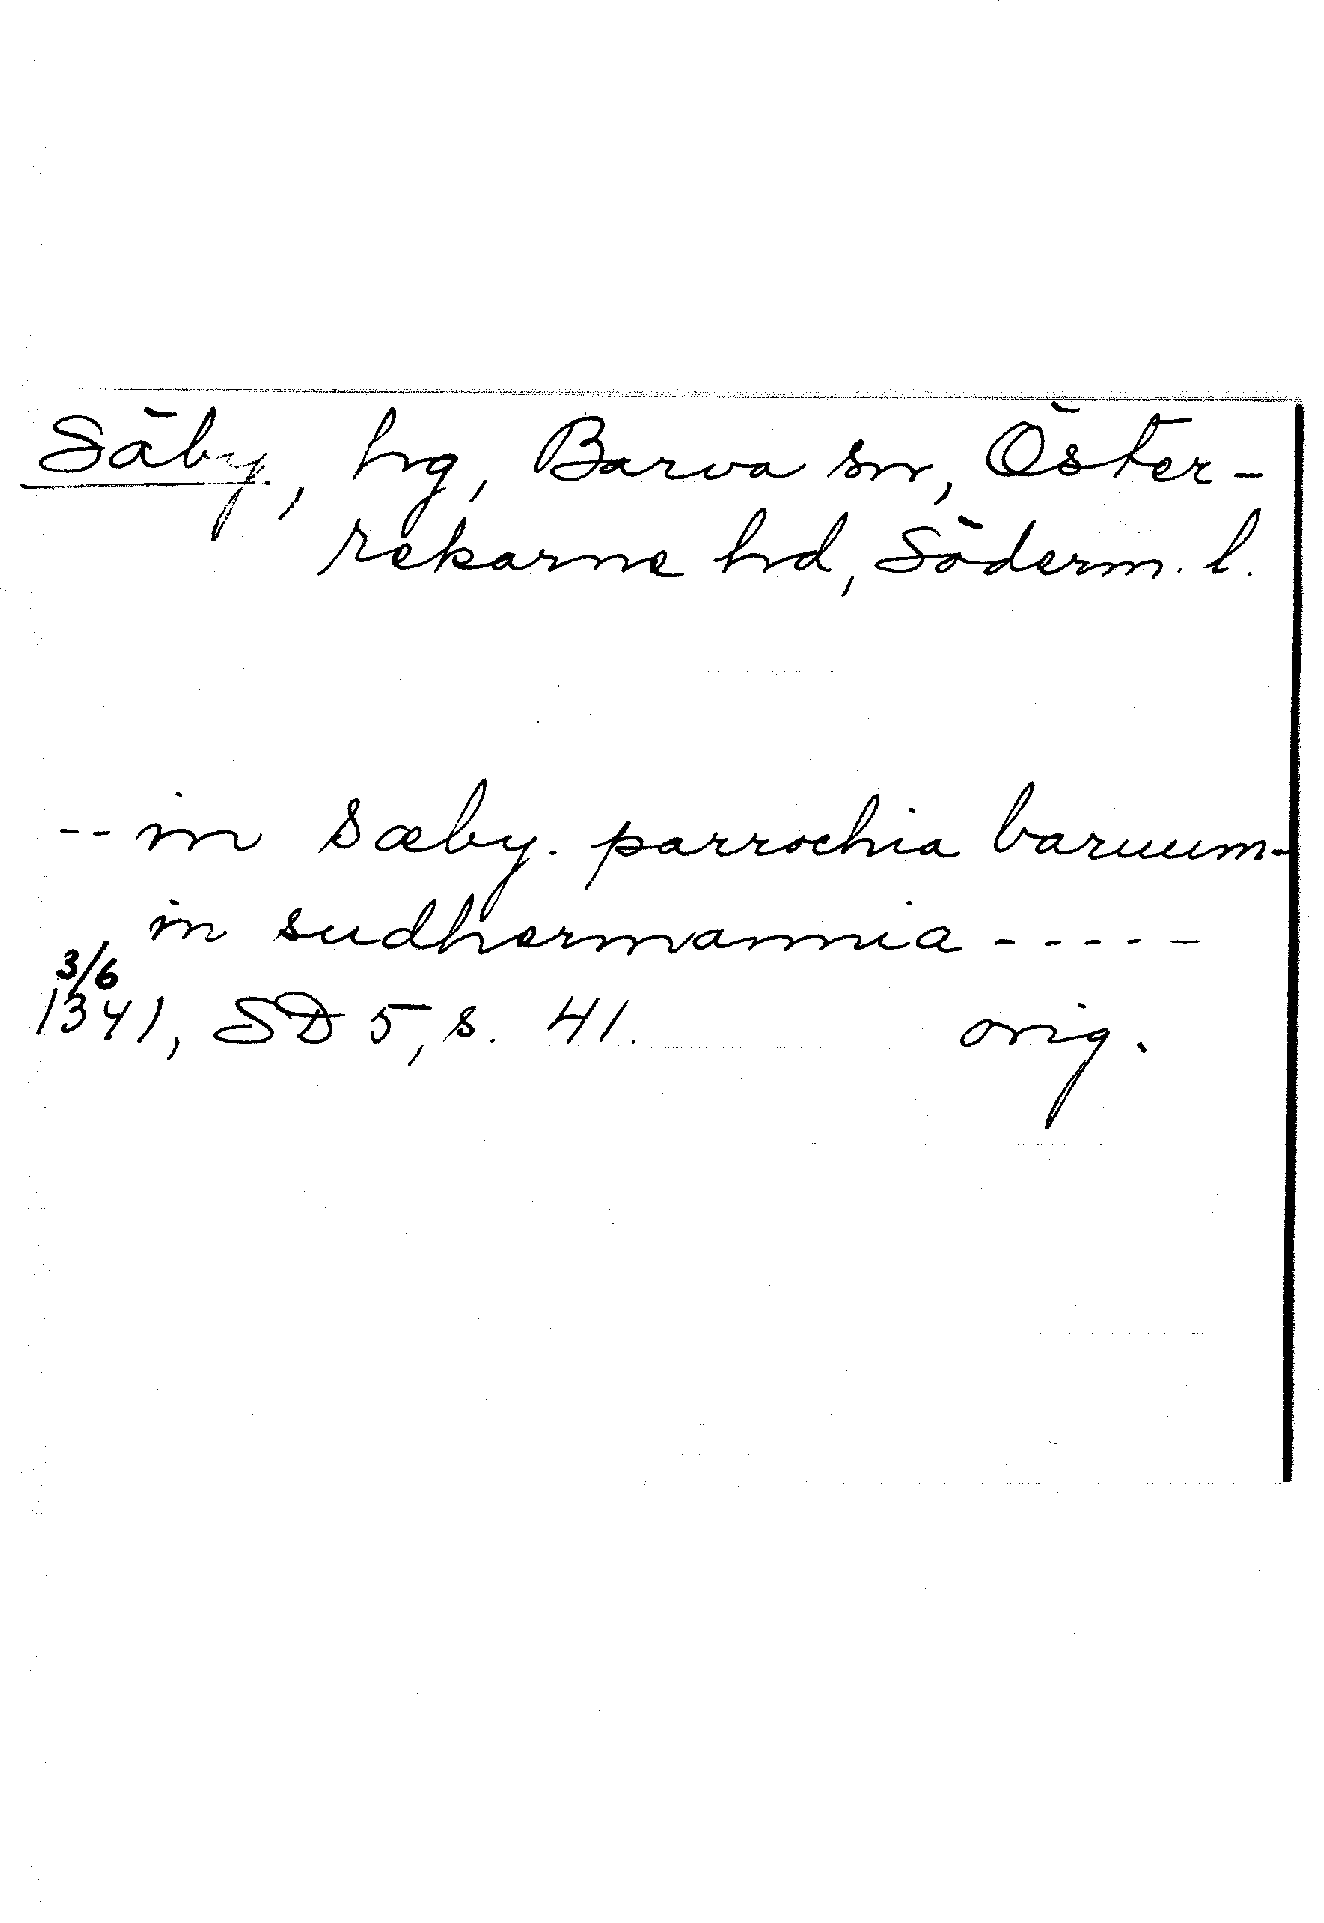 Säby, hg, Barva sn, Öster-
rekarne hd, Söderm. l.
-- in sæby. parrochia baruum-
in sudhermannia -----
3/6
1341, SD 5, s. 41. orig.